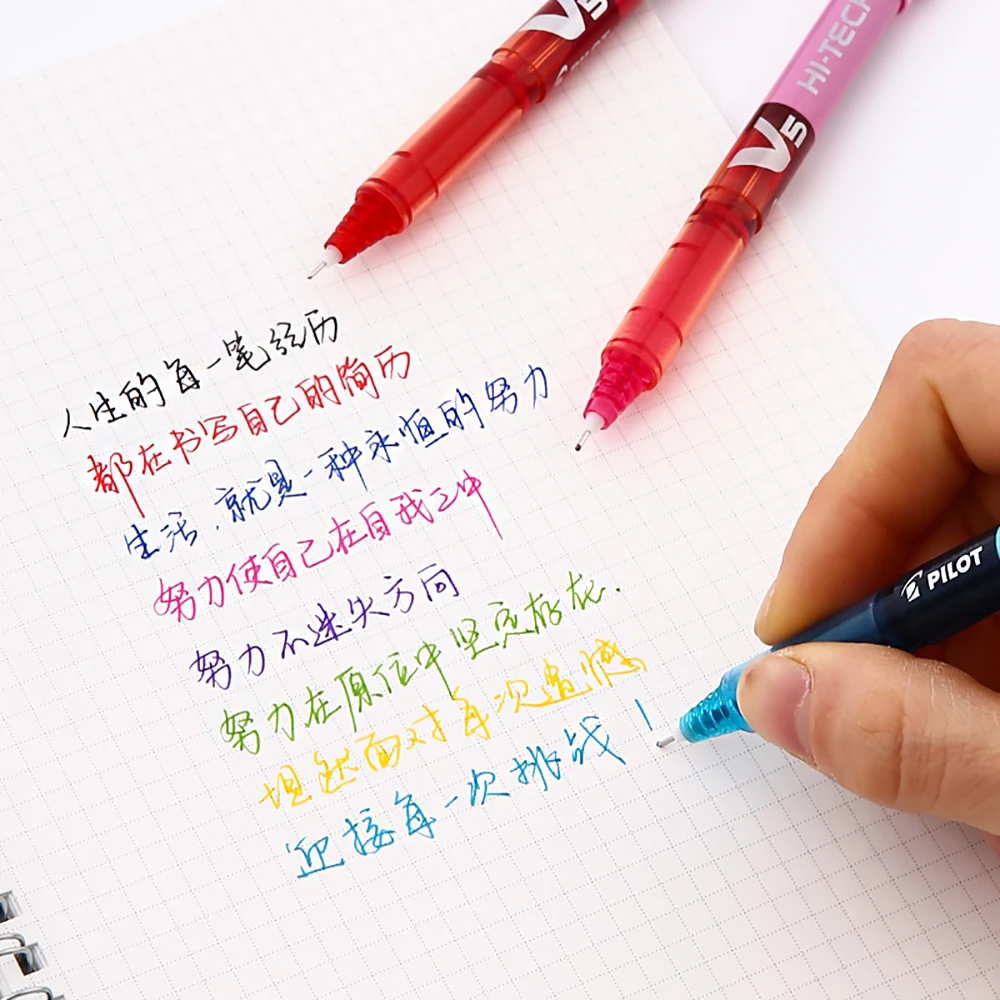 V5
PILOT
HI-TECP
V5
人生的每一笔经历
都在书写自己的简历
生活,就是一种永恒的努力
努力使自己在自我之中
努力不迷失方向
努力在原位中坚定存在.
坦然面对每次遗憾
迎接每一次挑战!
PILOT